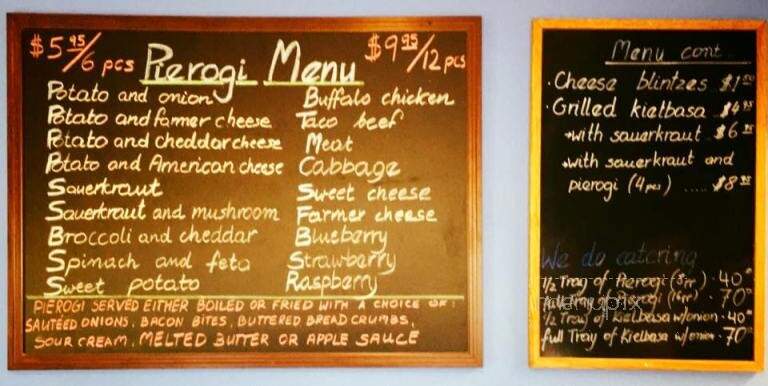 $5 95/6 pcs Pierogi Menu $9 95/12 pcs
Potato and onion
Potato and farmer cheese
Potato and cheddar cheese
Potato and American cheese
Sauerkraut
Sauerkraut and mushroom
Broccoli and cheddar
Spinach and feta
Sweet potato
Buffalo chicken
Taco beef
Meat
Cabbage
Sweet cheese
Farmer cheese
Blueberry
Strawberry
Raspberry
PIEROGI SERVED EITHER BOILED OR FRIED WITH A CHOICE OF
SAUTÉED ONIONS, BACON BITES, BUTTERED BREAD CRUMBS,
SOUR CREAM, MELTED BUTTER OR APPLE SAUCE
Menu cont.
· Cheese blintzes $1 50
· Grilled kielbasa $4 95
*with sauerkraut $6
*with sauerkraut and
pierogi (4pcs) .... $8 95
We do catering
1/2 Tray of Pierogi · 40
Pierogi · 70
1/2 Tray of Kielbasa w/onion · 40
full Tray of Kielbasa w/onion · 70